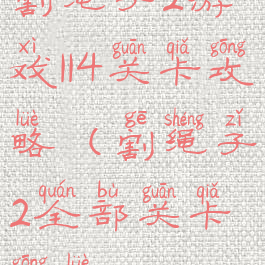 割绳子2游
xì guān qiǎ gōng
戏114关卡攻
lüè gē shéng zǐ
略(割绳子
quán bù guān qiǎ
2全部关卡
gōng lüè